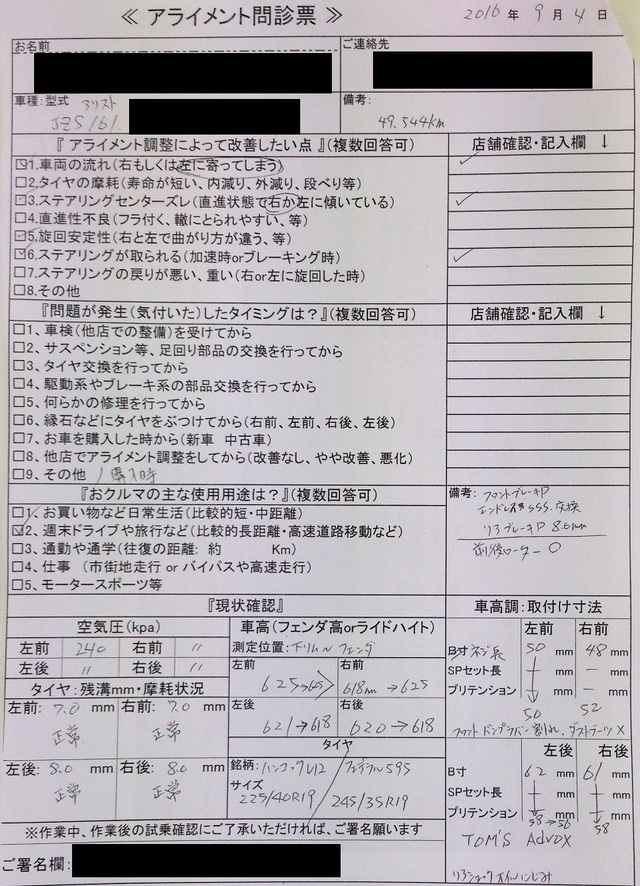 ≪ アライメント問診票 ≫ 2016 年 9 月 4 日
お名前 ご連絡先
車種:型式 アリスト 備考:
JZS161. 49.544km
『 アライメント調整によって改善したい点 』(複数回答可) 店舗確認・記入欄 ↓
☑1.車両の流れ(右もしくは左に寄ってしまう) ✓
□2.タイヤの摩耗(寿命が短い、内減り、外減り、段べり等)
☑3.ステアリングセンターズレ(直進状態で右か左に傾いている) ✓
□4.直進性不良(フラ付く、轍にとられやすい、等)
☑5.旋回安定性(右と左で曲がり方が違う、等)
☑6.ステアリングが取られる(加速時orブレーキング時) ✓
□7.ステアリングの戻りが悪い、重い(右or左に旋回した時)
□8.その他
『問題が発生(気付いた)したタイミングは?』(複数回答可) 店舗確認・記入欄 ↓
□1、車検(他店での整備)を受けてから
□2、サスペンション等、足回り部品の交換を行ってから
□3、タイヤ交換を行ってから
□4、駆動系やブレーキ系の部品交換を行ってから
□5、何らかの修理を行ってから
□6、縁石などにタイヤをぶつけてから(右前、左前、右後、左後)
□7、お車を購入した時から(新車 中古車)
□8、他店でアライメント調整をしてから(改善なし、やや改善、悪化)
□9、その他 購入時
『おクルマの主な使用用途は?』(複数回答可) 備考: フロントブレーキP
□1、お買い物など日常生活(比較的短・中距離) エンドレス SSS. 交換
☑2、週末ドライブや旅行など(比較的長距離・高速道路移動など) リヤブレーキP 8.0mm
□3、通勤や通学(往復の距離: 約 Km) 前後ローター ○
□4、仕事 (市街地走行 or バイパスや高速走行)
□5、モータースポーツ等
『現状確認』 車高調:取付け寸法
空気圧(kpa) 車高(フェンダ高orライドハイト) 左前 右前
左前 240 右前 〃 測定位置: 下リム〜フェンダ B寸 ネジ長 50 mm 48 mm
左後 〃 右後 〃 左前 右前 SPセット長 mm ー mm
タイヤ:残溝mm・摩耗状況 625→625 618mm→625 プリテンション mm ー mm
左前: 7.0 mm 右前: 7.0 mm 左後 右後 50 52
正常 正常 621→618 620→618 フロント バンプラバー 割れ、ダストブーツ ×
タイヤ 左後 右後
左後: 8.0 mm 右後: 8.0 mm 銘柄: ハンコックV12 フェデラル595 B寸 62 mm 61 mm
正常 正常 サイズ SPセット長 mm mm
225/40R19 245/35R19 プリテンション 58→56 mm mm 58
※作業中、作業後の試乗確認にご了承いただければ、ご署名願います TOM'S Advox
ご署名欄: リヤショック オイルにじみ